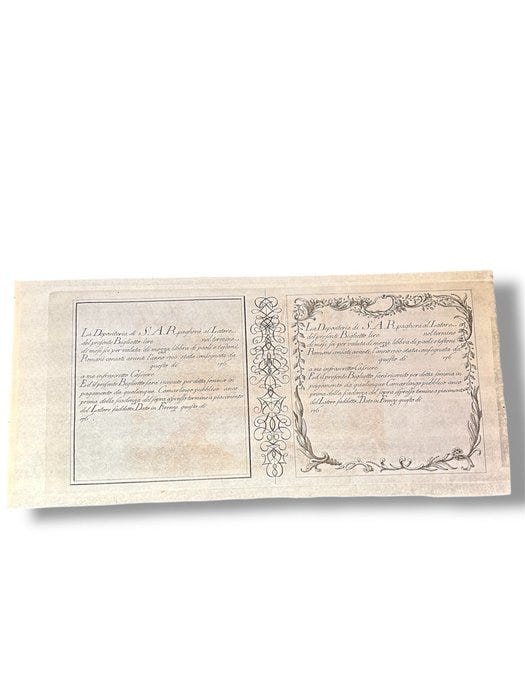 La Depositeria di S. A. R. pagherà al Latore
del presente Biglietto lire nel termine
di mesi sei per valuta di mezza libbra di paoli e testoni
Romani coniati avanti l'anno 1900 stata consegnata da
questo dì 176
a me infrascritto Cassiere
Ed il presente Biglietto sarà ricevuto per detta somma in
pagamento da qualunque Camarlingo pubblico anco
prima della scadenza del sopra espresso termine a piacimento
del Latore suddetto. Dato in Firenze questo dì
176
La Depositeria di S. A. R. pagherà al Latore
del presente Biglietto lire nel termine
di mesi sei per valuta di mezza libbra di paoli e testoni
Romani coniati avanti l'anno 1900 stata consegnata da
questo dì 176
a me infrascritto Cassiere
Ed il presente Biglietto sarà ricevuto per detta somma in
pagamento da qualunque Camarlingo pubblico anco
prima della scadenza del sopra espresso termine a piacimento
del Latore suddetto. Dato in Firenze questo dì
176